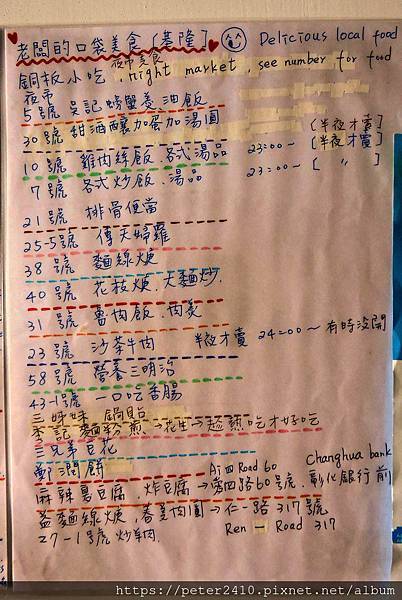 老闆的口袋美食〔基隆〕 Delicious local food
夜市美食
銅板小吃 , night market , see number for food
夜市
5號 吳記螃蟹羹 油飯
30號 甜酒釀加蛋加湯圓 〔半夜才賣〕
10號 雞肉絲飯.各式湯品 23:00~〔半夜才賣〕
7號 各式炒飯.湯品 23:00~〔 〃 〕
21號 排骨便當
25-5號 傳天婦羅
38號 麵線焿
40號 花枝焿.大麵炒.
31號 魯肉飯.肉羹
23號 沙茶牛肉 半夜才賣 24:00~有時沒開
58號 營養三明治
43-1號 一口吃香腸
三姊妹 鍋貼
李記 麵粉煎→花生→趁熱吃才好吃
三兄弟豆花
鄭潤餅
Ai 四 Road 60 Changhua bank
麻辣臭豆腐.炸豆腐→愛四路60號.彰化銀行前
孟麵線焿,香菜肉圓→仁一路317號
27-1號炒羊肉. Ren 一 Road 317
https://peter2410.pixnet.net/album